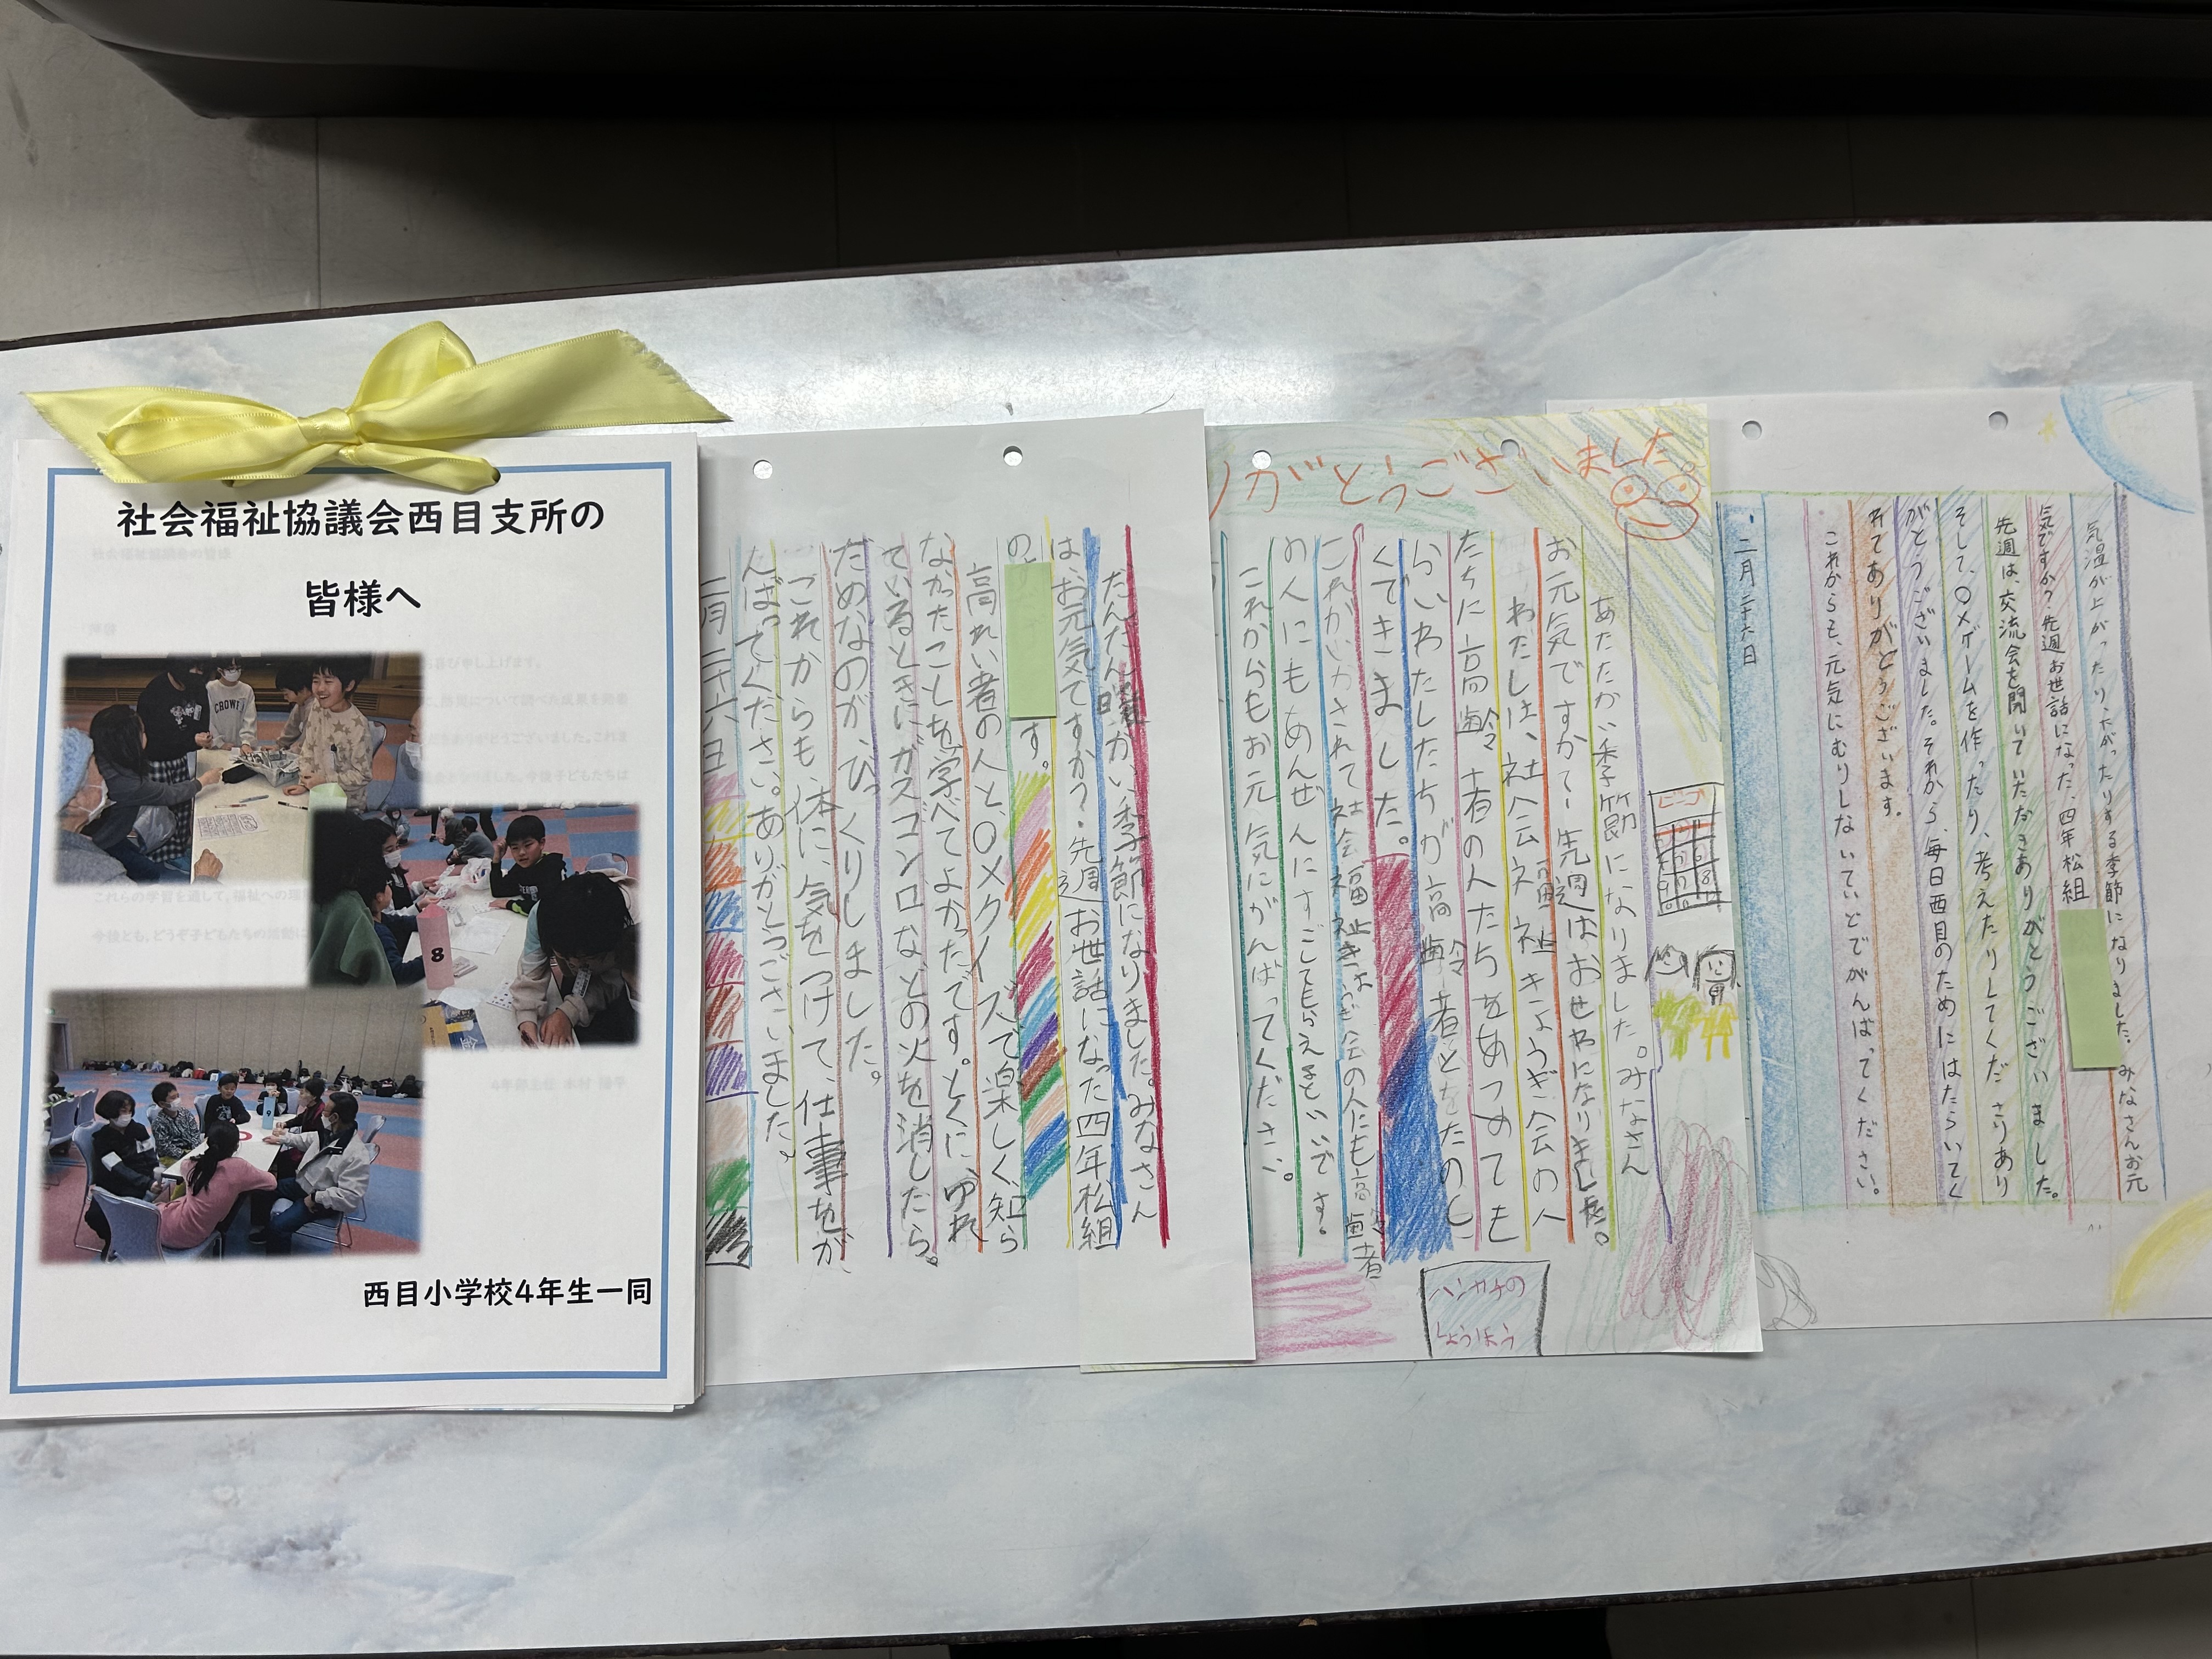 社会福祉協議会西目支所の
皆様へ
CROWE
8
9
西目小学校4年生一同
だんだん暖かい季節になりました。みなさん
は、お元気ですか？先週お世話になった四年松組
の
す。
高れい者の人と、〇×クイズで楽しく、知ら
なかったことを学べてよかったです。とくに、ゆれ
ているときにガスコンロなどの火を消したら。
だめなのが、びっくりしました。
これからも、体に、気をつけて、仕事をが
んばってください。ありがとうございました。
二月二十六日
がとうございました。
あたたかい季節になりました。みなさん
お元気ですか？先週はおせわになりました。
わたしは、社会福祉きょうぎ会の人
たちに高齢者の人たちをあつめても
らいわたしたちが高齢者とをたの
くできました。
これからもお元気にがんばってください。
ビンゴ
ハンカチの
しょうほう
気温が上がったり、下がったりする季節になりました。みなさんお元
気ですか？先週お世話になった、四年松組
先週は、交流会を開いていただきありがとうございました。
そして、〇×ゲームを作ったり、考えたりしてくださりあり
がとうございました。それから、毎日西目のためにはたらいてく
れてありがとうございます。
これからも、元気にむりしないていどでがんばってください。
二月二十六日